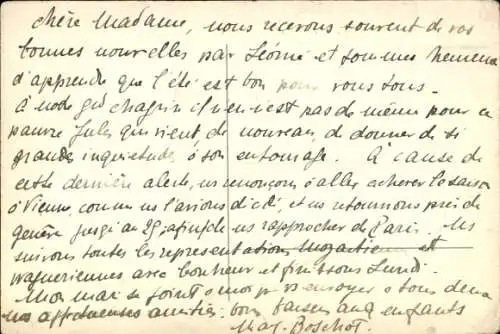 chère Madame, nous recevons souvent de vos
bonnes nouvelles par Léonie et sommes heureux
d'apprendre que l'été est bon pour vous tous.
A notre gd chagrin il n'en est pas de même pour ce
pauvre Jules qui vient de nouveau de donner de si
grandes inquiétudes à son entourage. A cause de
cette dernière alerte, ns renonçons à aller achever la saison
à Vienne, comme ns l'avions dit, et ns retournons près de
genève jusqu'au 25, afin de ns rapprocher de Paris. Ns
suivons toutes les représentations Mozartiennes et
wagnériennes avec bonheur et finissons Lundi.
Mon mari se joint à moi pr vs envoyer à tous deux
nos affectueuses amitiés. bons baisers aux enfants
Mag. Boschot